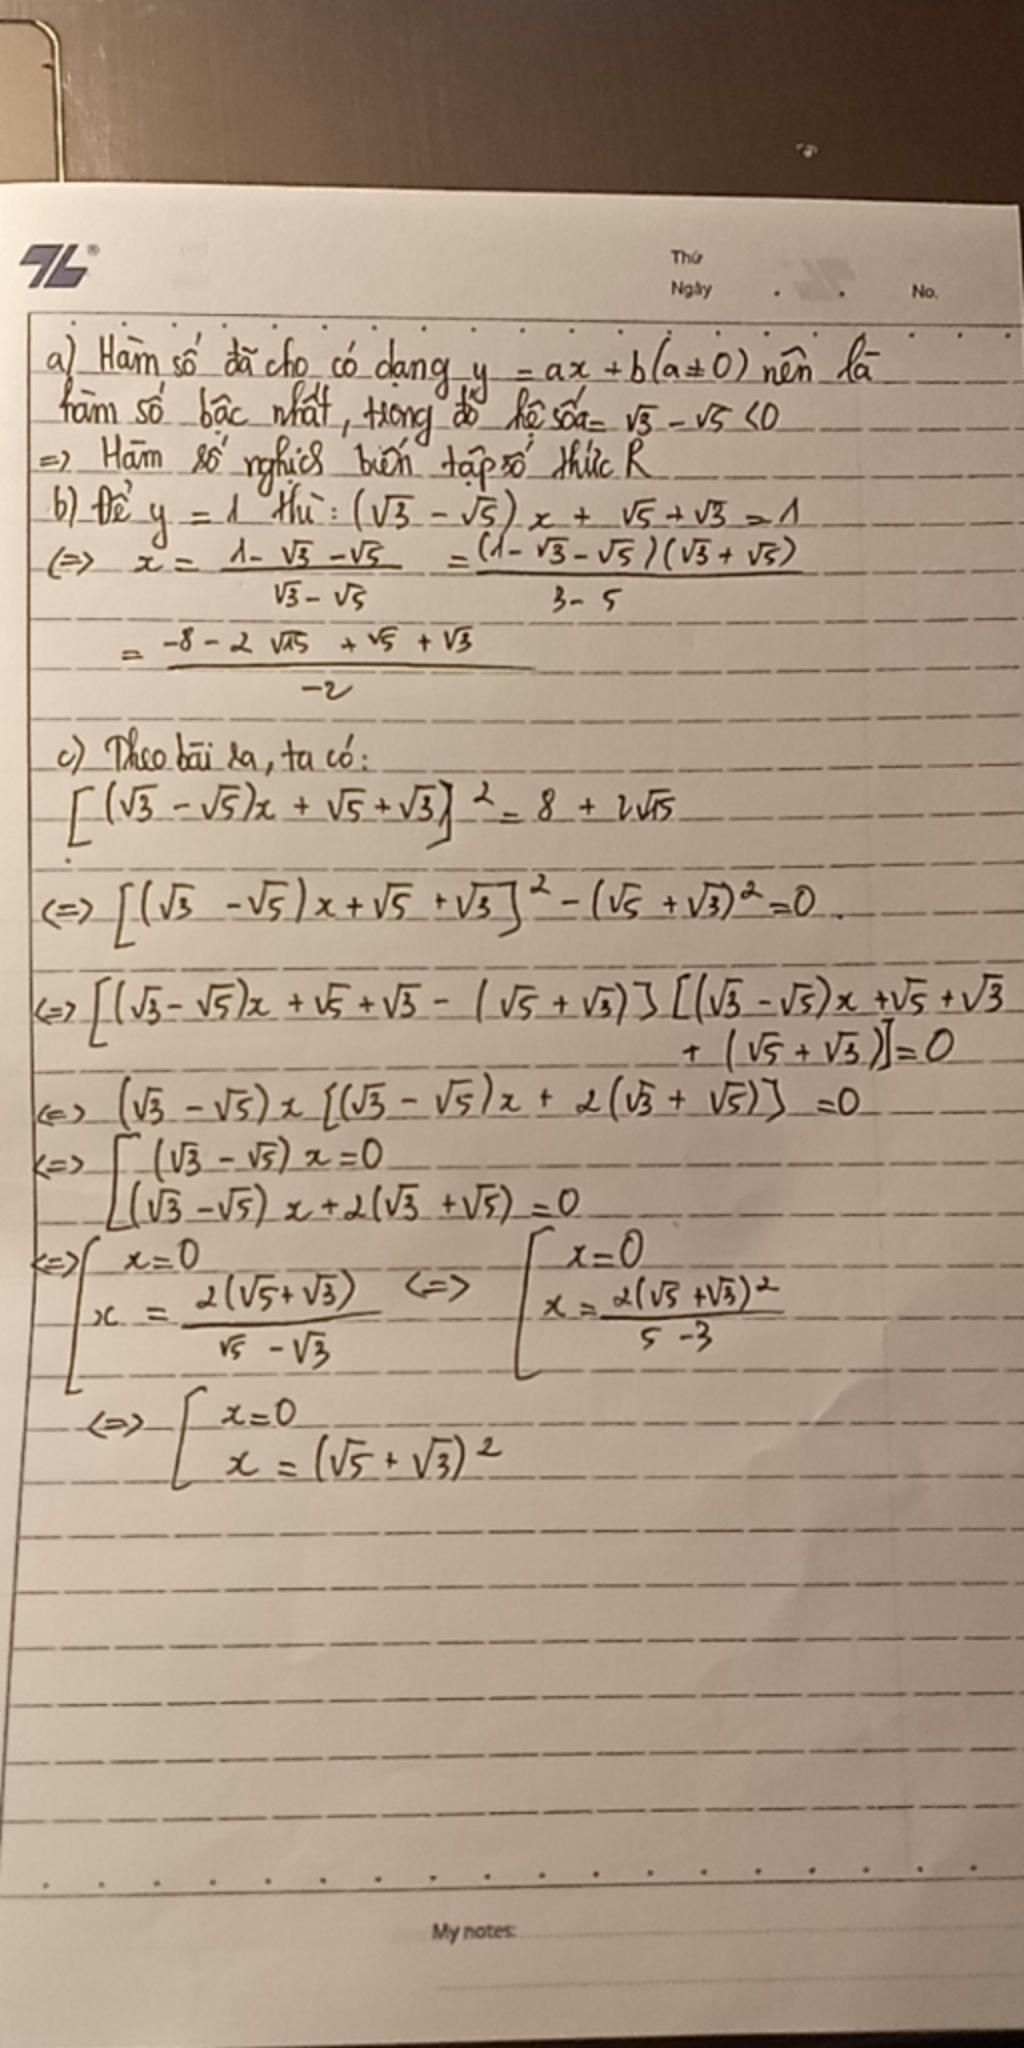 Thứ
Ngày . . No.
a) Hàm số đã cho có dạng y = ax + b (a ≠ 0) nên là
hàm số bậc nhất, trong đó hệ số a = √3 - √5 < 0
=> Hàm số nghịch biến tập số thức R
b) Để y = 1 thì: (√3 - √5) x + √5 + √3 = 1
<=> x = (1 - √3 - √5)/(√3 - √5) = ((1 - √3 - √5)(√3 + √5))/(3 - 5)
= (-8 - 2√15 + √5 + √3)/(-2)
c) Theo bài ra, ta có:
[(√3 - √5)x + √5 + √3]² = 8 + 2√15
<=> [(√3 - √5)x + √5 + √3]² - (√5 + √3)² = 0.
<=> [(√3 - √5)x + √5 + √3 - (√5 + √3)] [(√3 - √5)x + √5 + √3
+ (√5 + √3)] = 0
<=> (√3 - √5) x [(√3 - √5)x + 2(√3 + √5)] = 0
<=> [ (√3 - √5) x = 0
(√3 - √5) x + 2(√3 + √5) = 0
<=> [ x = 0 <=> [ x = 0
x = 2(√5 + √3)/(√5 - √3) x = 2(√5 + √3)²/(5 - 3)
<=> [ x = 0
x = (√5 + √3)²
My notes: